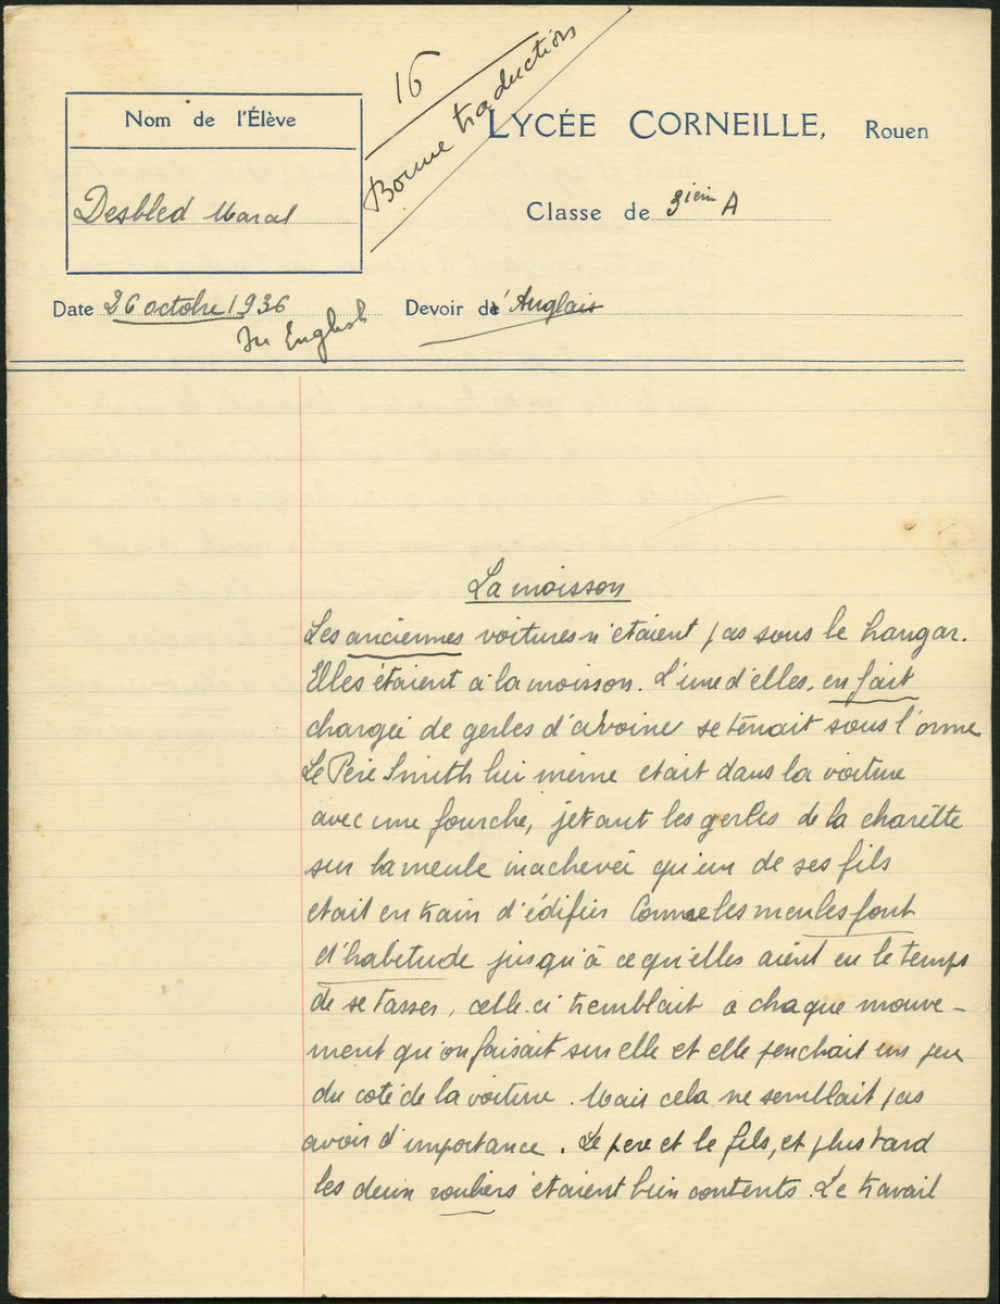 16
Bonne traduction
Nom de l'Élève
LYCÉE CORNEILLE, Rouen
Desbled Marcel
Classe de 3ièm A
Date 26 octobre 1936
Devoir de l'Anglais
In English
La moisson
Les anciennes voitures n'etaient pas sous le hangar.
Elles étaient à la moisson. L'une d'elles, en fait
chargée de gerbes d'avoine se tenait sous l'orme
Le Père Smith lui meme etait dans la voiture
avec une fourche, jetant les gerbes de la charette
sur la meule inachevée qu'un de ses fils
etait en train d'édifier Comme les meules font
d'habitude jusqu'à ce qu'elles aient eu le temps
de se tasser, celle ci tremblait a chaque mouve-
ment qu'on faisait sur elle et elle penchait un peu
du coté de la voiture. Mais cela ne semblait pas
avoir d'importance. Le pere et le fils, et plus tard
les deux rouliers étaient bien contents. Le travail